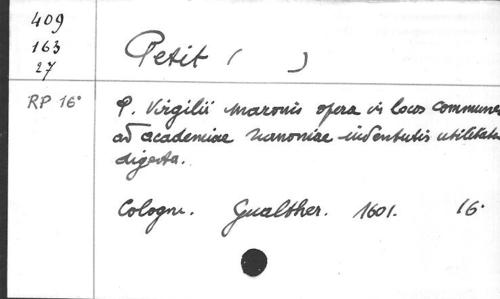 409
163
27
Petit ( )
RP 16°
P. Virgilii Maronis opera in locos communes
ad academiae Hanoniae iudentutis utilitate
digesta.
Cologne. Gualther. 1601. 16°